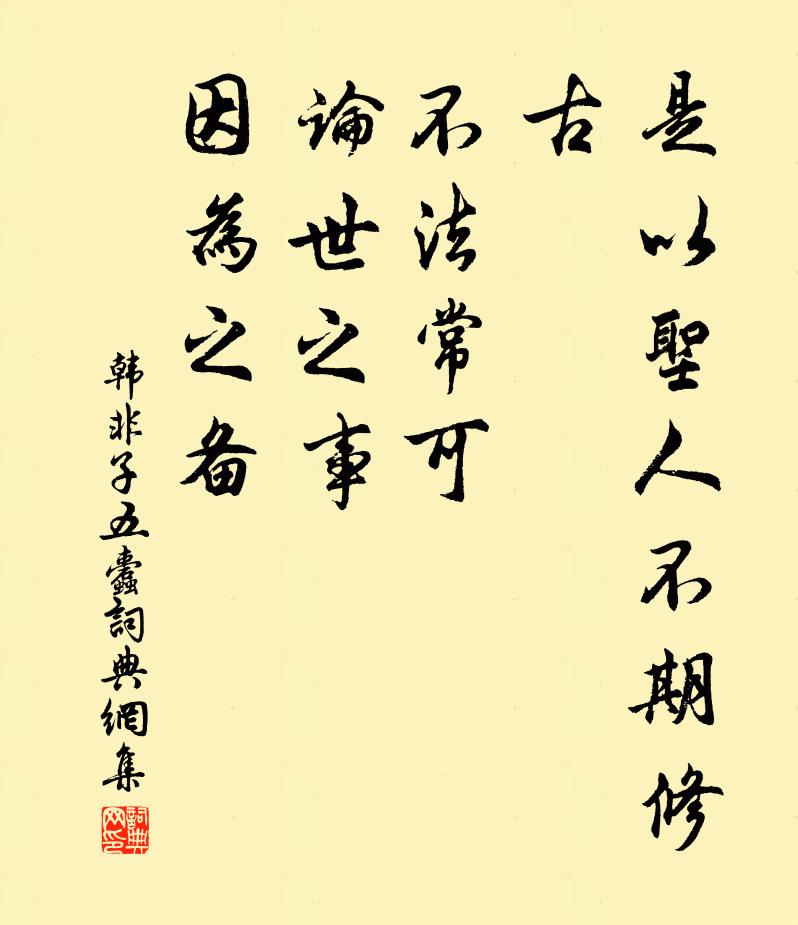 是以聖人不期修
古
不法常可
論世之事
因為之备
韩非子五蠹詞典網集
詞典网印